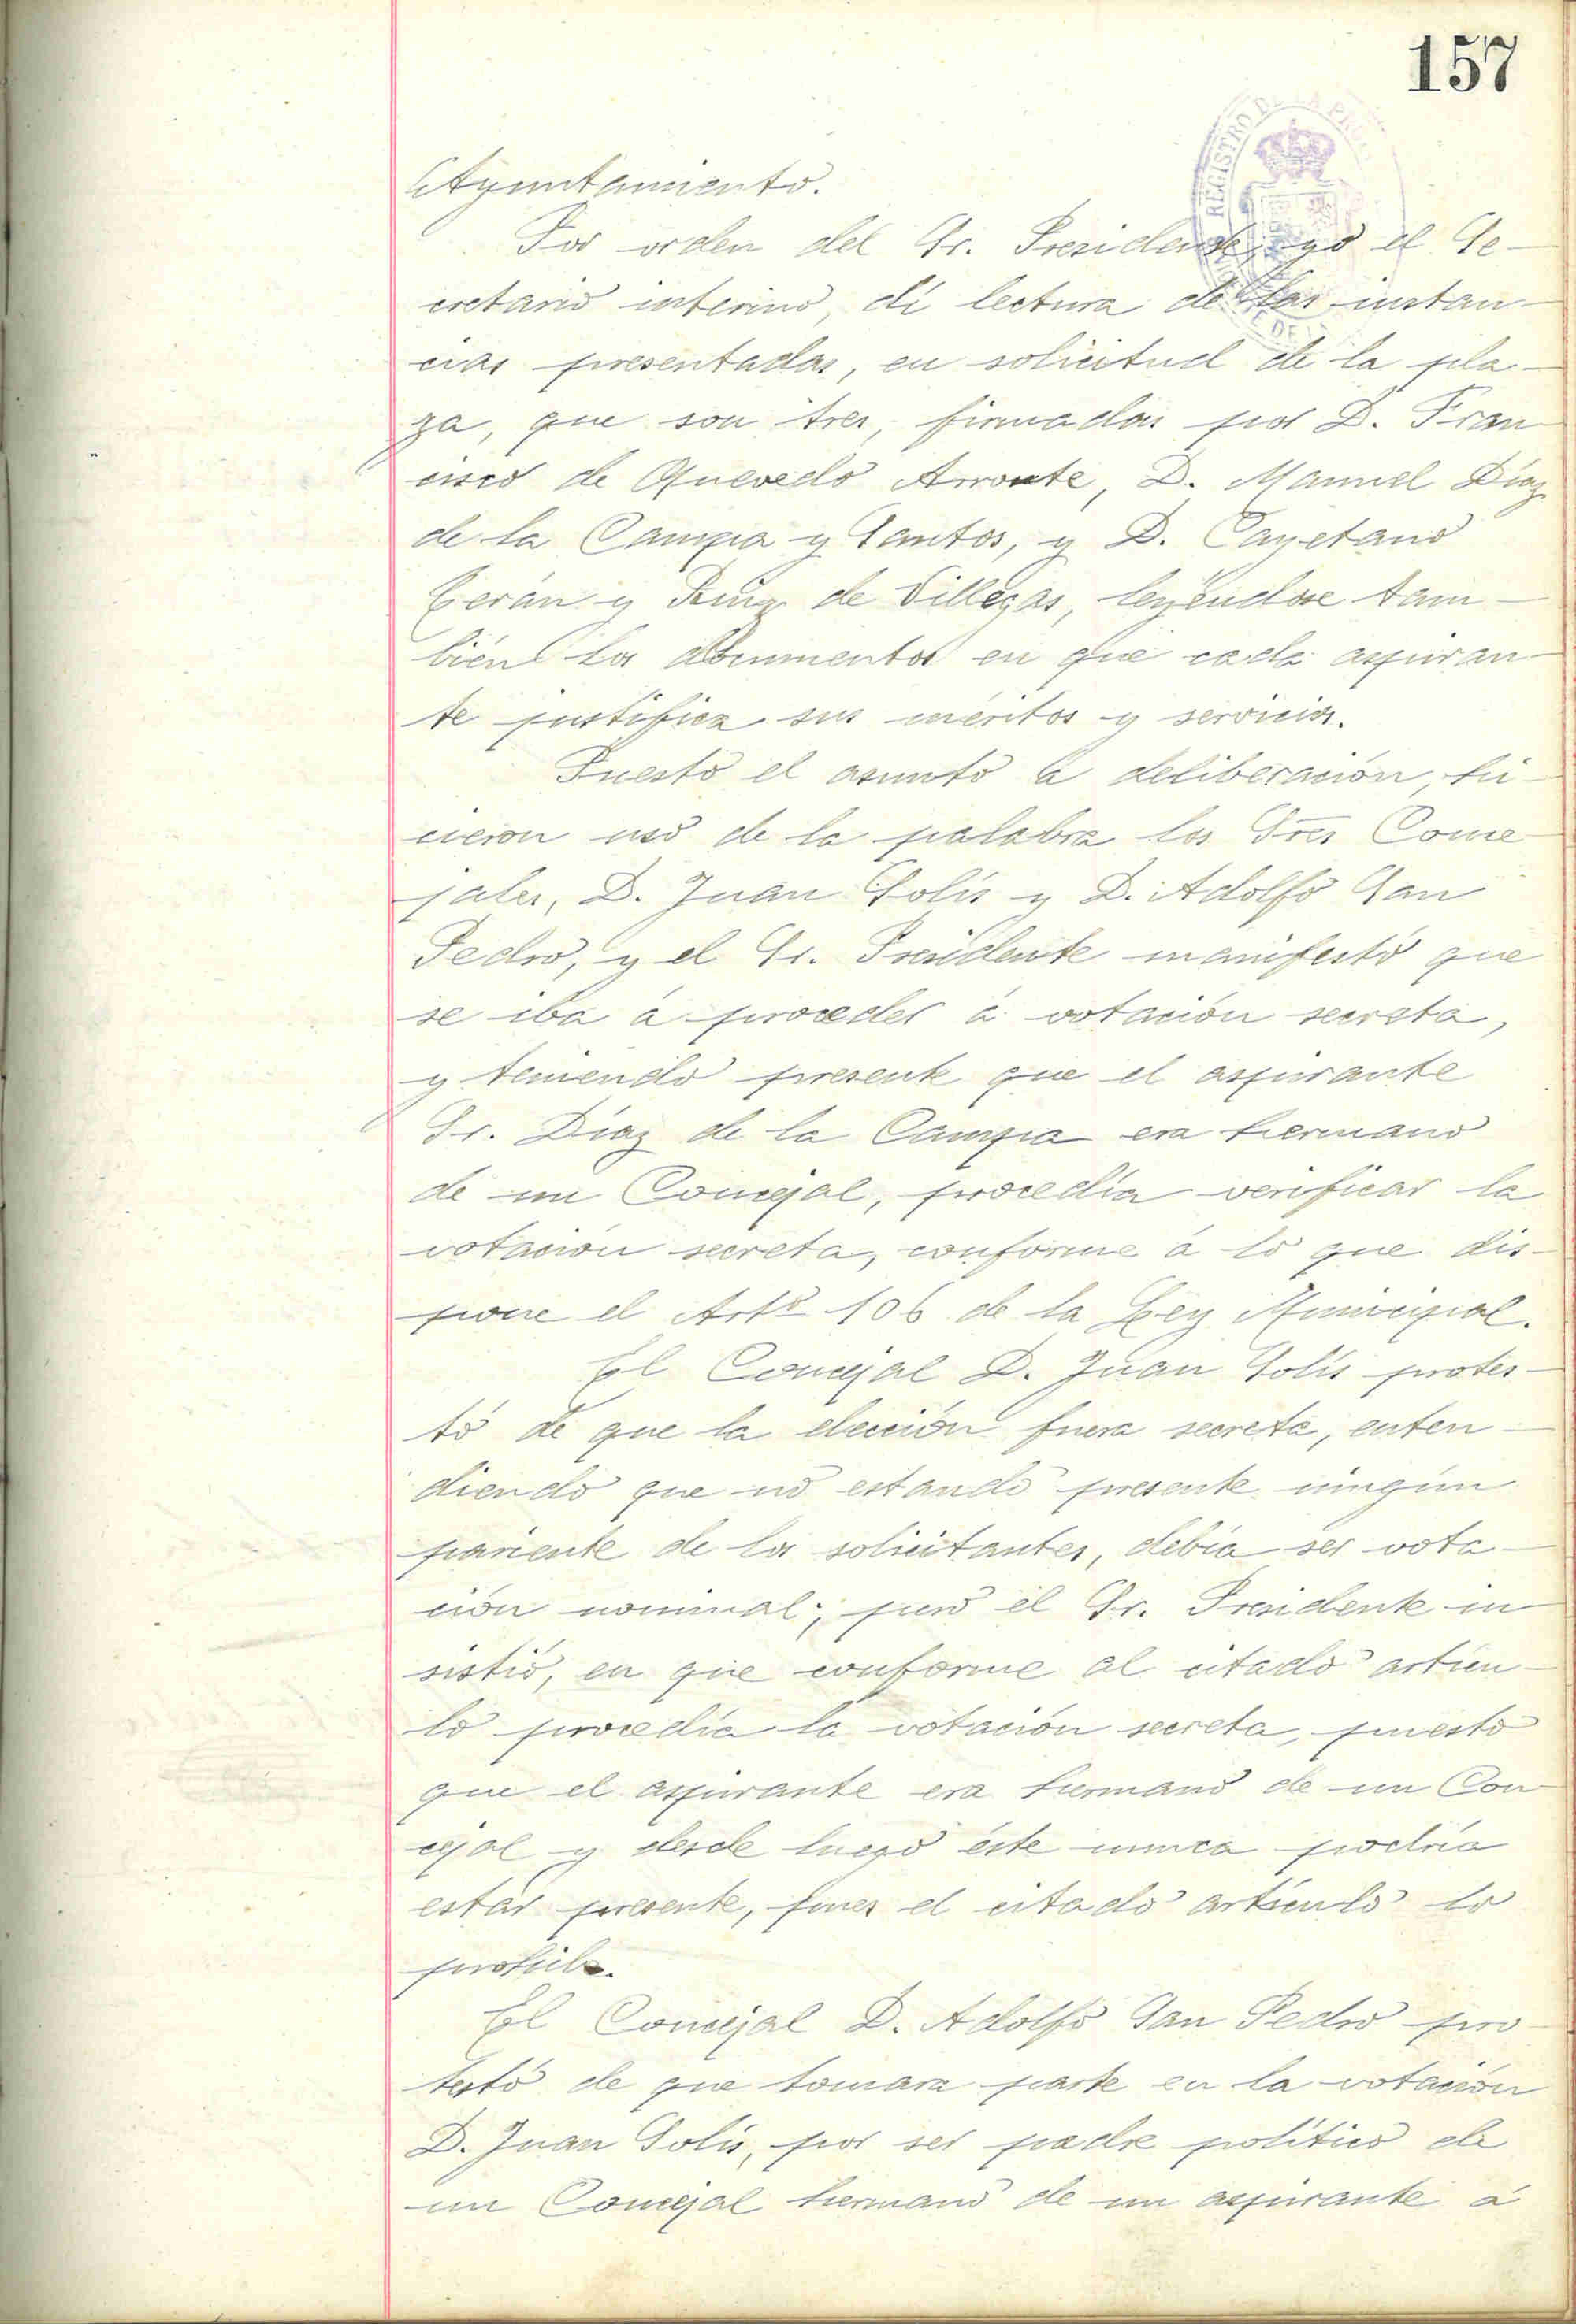 157
Ayuntamiento.
Por orden del Sr. Presidente, yo el Se-
cretario interino, di lectura de las instan-
cias presentadas, en solicitud de la pla-
za, que son tres, firmadas por D. Fran
cisco de Quevedo Arronte, D. Manuel Diaz
de la Campa y Santos, y D. Cayetano
Terán y Ruiz de Villegas, leyéndose tam-
bien los documentos en que cada aspiran-
te justifica sus méritos y servicios.
Puesto el asunto á deliberación, hi-
cieron uso de la palabra los Sres Conce
jales, D. Juan Solis y D. Adolfo San
Pedro, y el Sr. Presidente manifestó que
se iba á proceder á votación secreta,
y teniendo presente que el aspirante
Sr. Diaz de la Campa era hermano
de un Concejal, procedia verificar la
votación secreta, conforme á lo que dis-
pone el Artº 106 de la Ley Municipal.
El Concejal D. Juan Solis protes-
tó de que la elección fuera secreta, enten-
diendo que no estando presente ningún
pariente de los solicitantes, debia ser vota-
ción nominal; pero el Sr. Presidente in
sistió, en que conforme al citado articu-
lo procedia la votación secreta, puesto
que el aspirante era hermano de un Con
cejal y desde luego éste nunca podria
estar presente, pues el citado articulo lo
prohibe.
El Concejal D. Adolfo San Pedro pro-
testó de que tomara parte en la votación
D. Juan Solis, por ser padre politico de
un Concejal hermano de un aspirante á